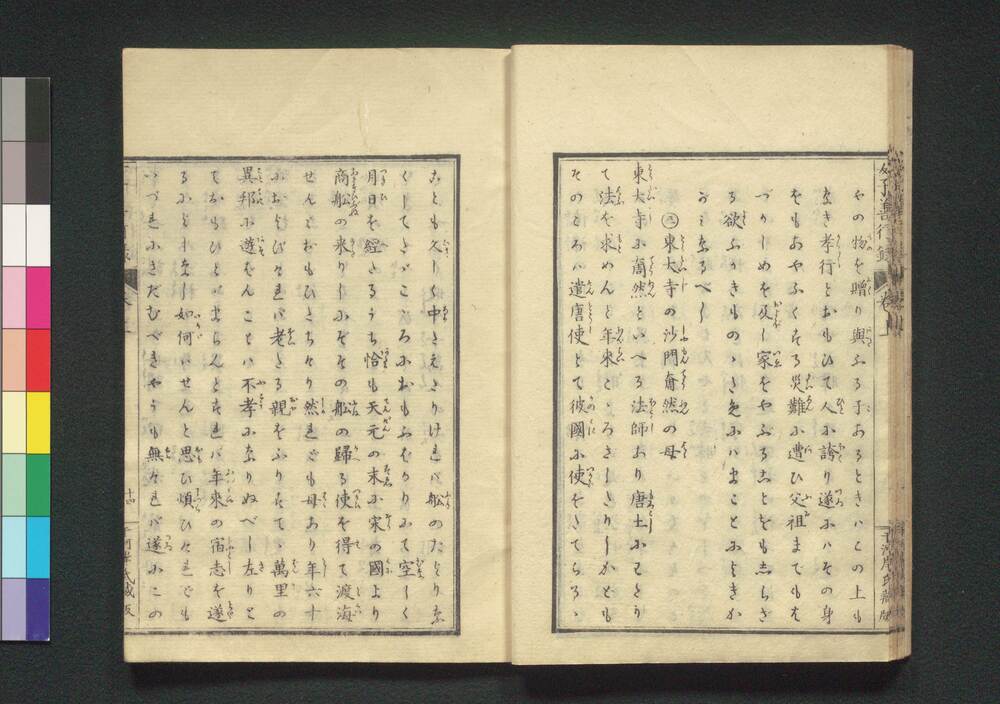 やの物を贈り與ふる子あるときハこの上も
なき孝行とおもひて人に誇り遂にハその身
をもあやふくする災難に遭ひ父祖までもは
づかしめを及し家をやぶることをも志らざ
る欲ふかきものゝため にハ よきか
がミなるべし
東大寺の沙門奝然の母
東大寺に奝然といへる法師あり唐土にわたり
て法を求めんと年来こゝろざしありしかども
そのころハ遣唐使とて彼國に使をさてらるゝ
ことも久しく中たえたりけれバ船のたよりな
くしてたゞこゝろにおもふばかりにて空しく
月日を經たるうち恰も天元の末に宋の國より
商船の来りしにぞその船の歸る便を得て渡海
せんとおもひたちたり然れども母あり年六十
におよびたれバ老たる親をふりすてゝ萬里の
異邦に遊をんことハ不孝になりぬべし左りと
ておもひとゞまらんとすれバ年来の宿志を遂
るふとなし如何ハせんと思ひ煩ひたれども
いづれにさだむべきやうも無けれバ遂にこの
十四